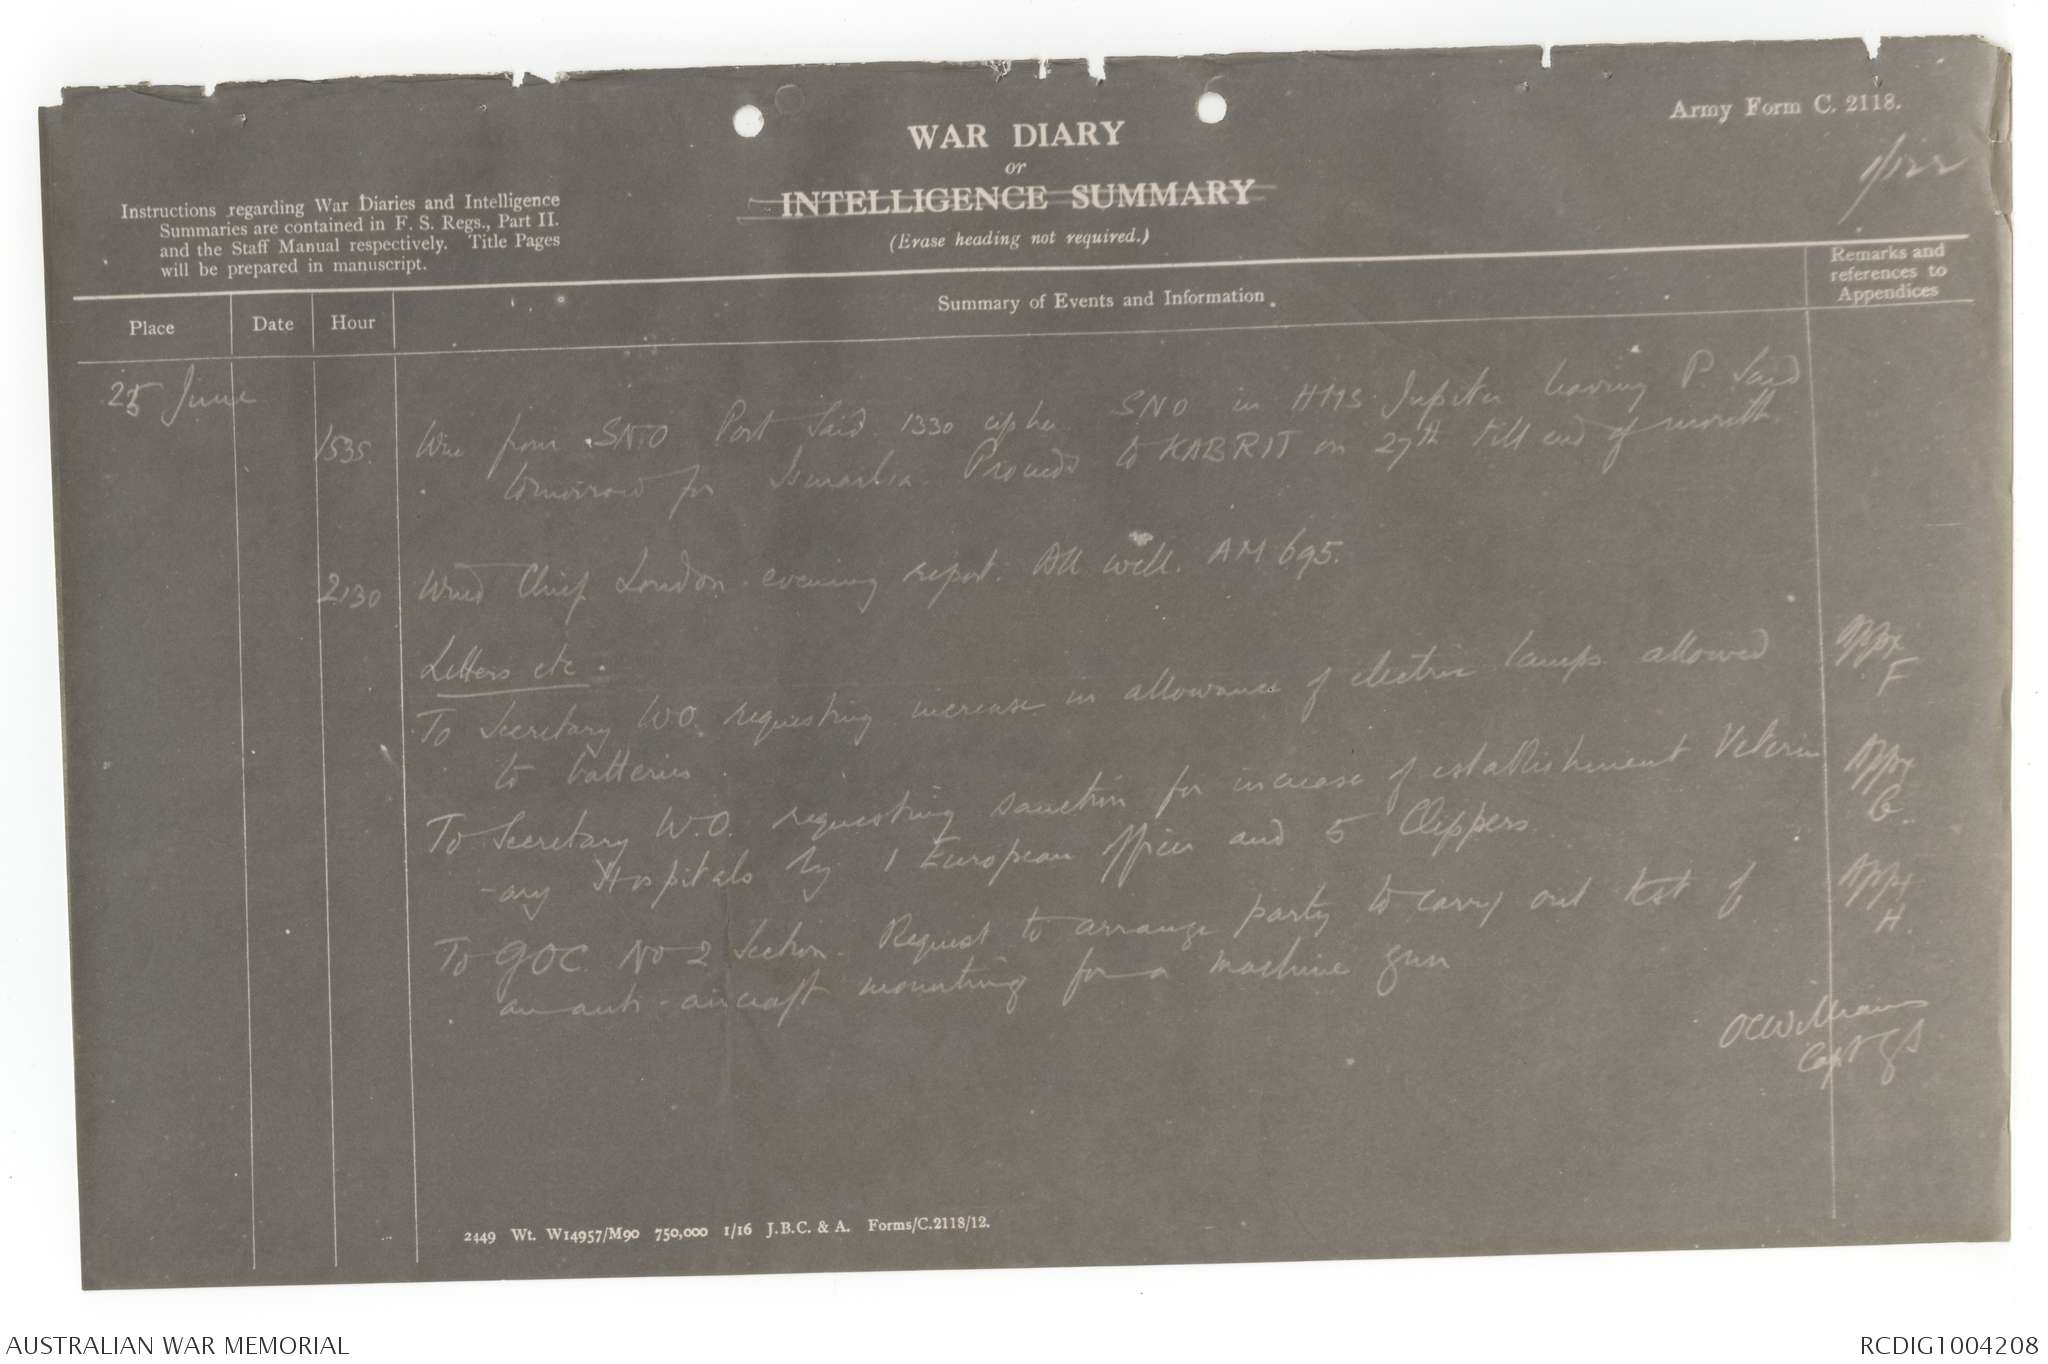 Army Form C. 2118.
1/122
WAR DIARY
or
INTELLIGENCE SUMMARY
(Erase heading not required.)
Instructions regarding War Diaries and Intelligence
Summaries are contained in F. S. Regs., Part II.
and the Staff Manual respectively. Title Pages
will be prepared in manuscript.
Place
Date
Hour
Summary of Events and Information.
Remarks and
references to
Appendices
25 June
1535. Wire from SNO Port Said 1330 cipher SNO in HMS Jupiter leaving P. Said
tomorrow for Ismailia. Proceeds to KABRIT on 27th till end of month
2130 Wired Chief London evening report. All well. AM 695.
Letters etc.
To Secretary W.O. requesting increase in allowance of electric lamps allowed
to batteries
Appx
F
To Secretary W.O. requesting sanction for increase of establishment Veterin
-ary Hospitals by 1 European Officer and 5 Clippers.
Appx
G.
To GOC. No 2 Section. Request to arrange party to carry out test of
an anti-aircraft mounting for a machine gun
Appx
H.
OCWilliams
Capt GS
2449 Wt. W14957/M90 750,000 1/16 J.B.C. & A. Forms/C.2118/12.
AUSTRALIAN WAR MEMORIAL
RCDIG1004208